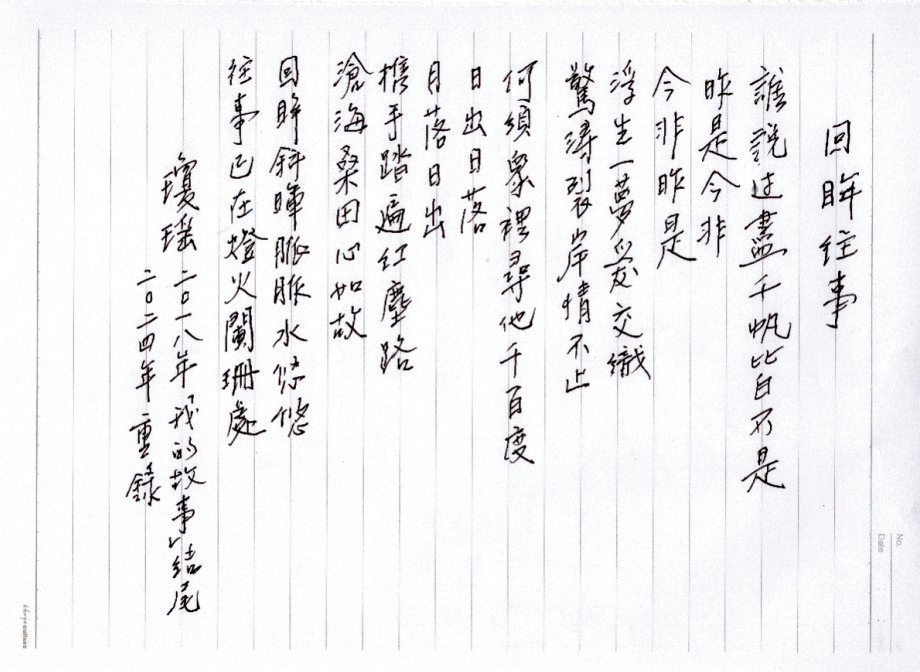 回眸往事
誰說过盡千帆皆不是
昨是今非
今非昨是
浮生一夢愛交織
驚濤裂岸情不止
何須衆裡尋他千百度
日出日落
月落日出
攜手踏遍红塵路
滄海桑田心如故
回眸斜暉脈脈水悠悠
往事已在燈火闌珊處
瓊瑤 二〇一八年「我的故事」結尾
二〇二四年重錄
No.
Date